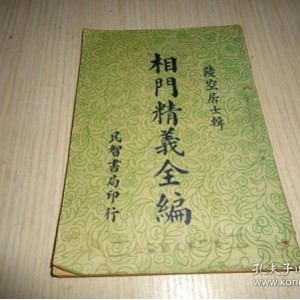 陵空居士輯
相門精義全編
民智書局印行
孔夫子